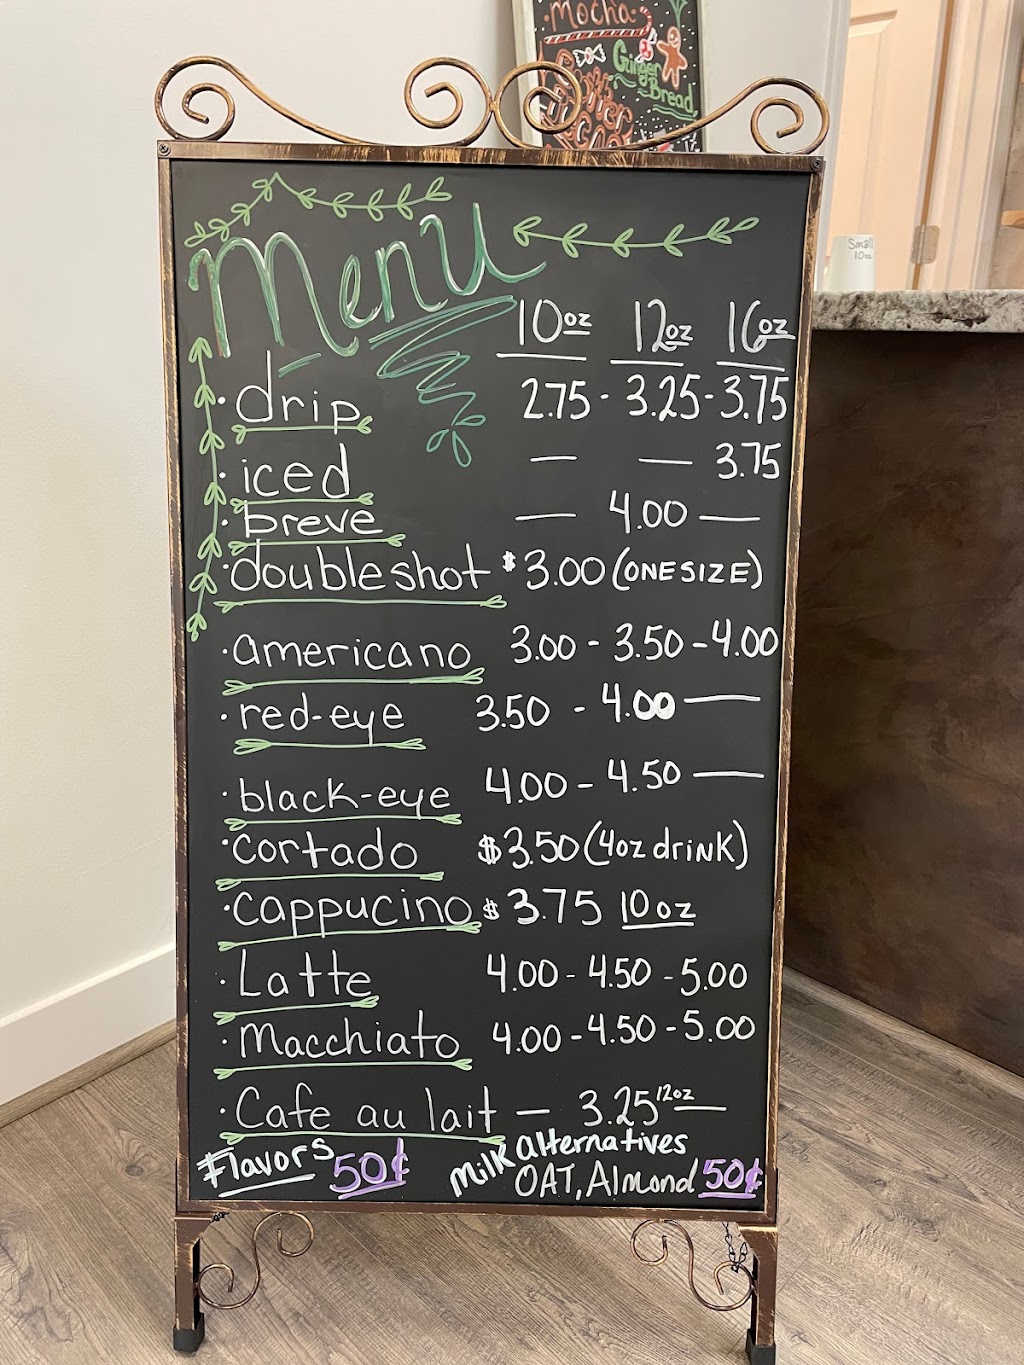 Mocha
Ginger
Bread
Small
10oz
Menu
10oz 12oz 16oz
• drip 2.75 - 3.25 - 3.75
• iced — — 3.75
• breve — 4.00 —
• double shot $3.00 (ONE SIZE)
• americano 3.00 - 3.50 - 4.00
• red-eye 3.50 - 4.00 —
• black-eye 4.00 - 4.50 —
• cortado $3.50 (4oz drink)
• cappucino $3.75 10oz
• Latte 4.00 - 4.50 - 5.00
• Macchiato 4.00 - 4.50 - 5.00
• Cafe au lait — 3.25 12oz —
Flavors 50¢
Milk alternatives
OAT, Almond 50¢